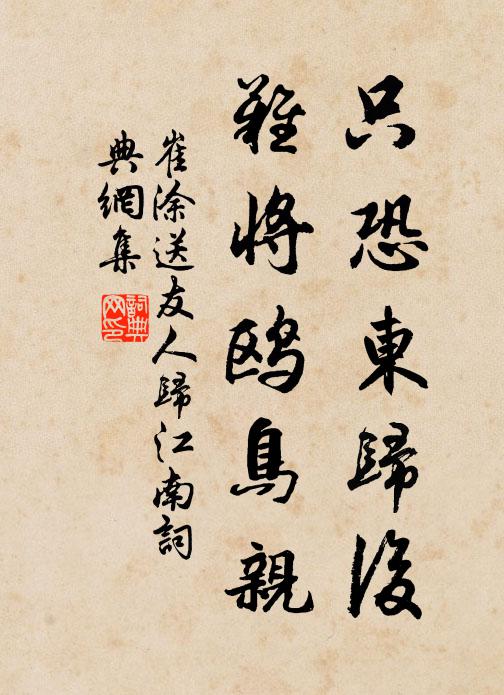 只恐東歸後
難將鷗鳥親
崔涂送友人歸江南詞
典網集
詞典網印